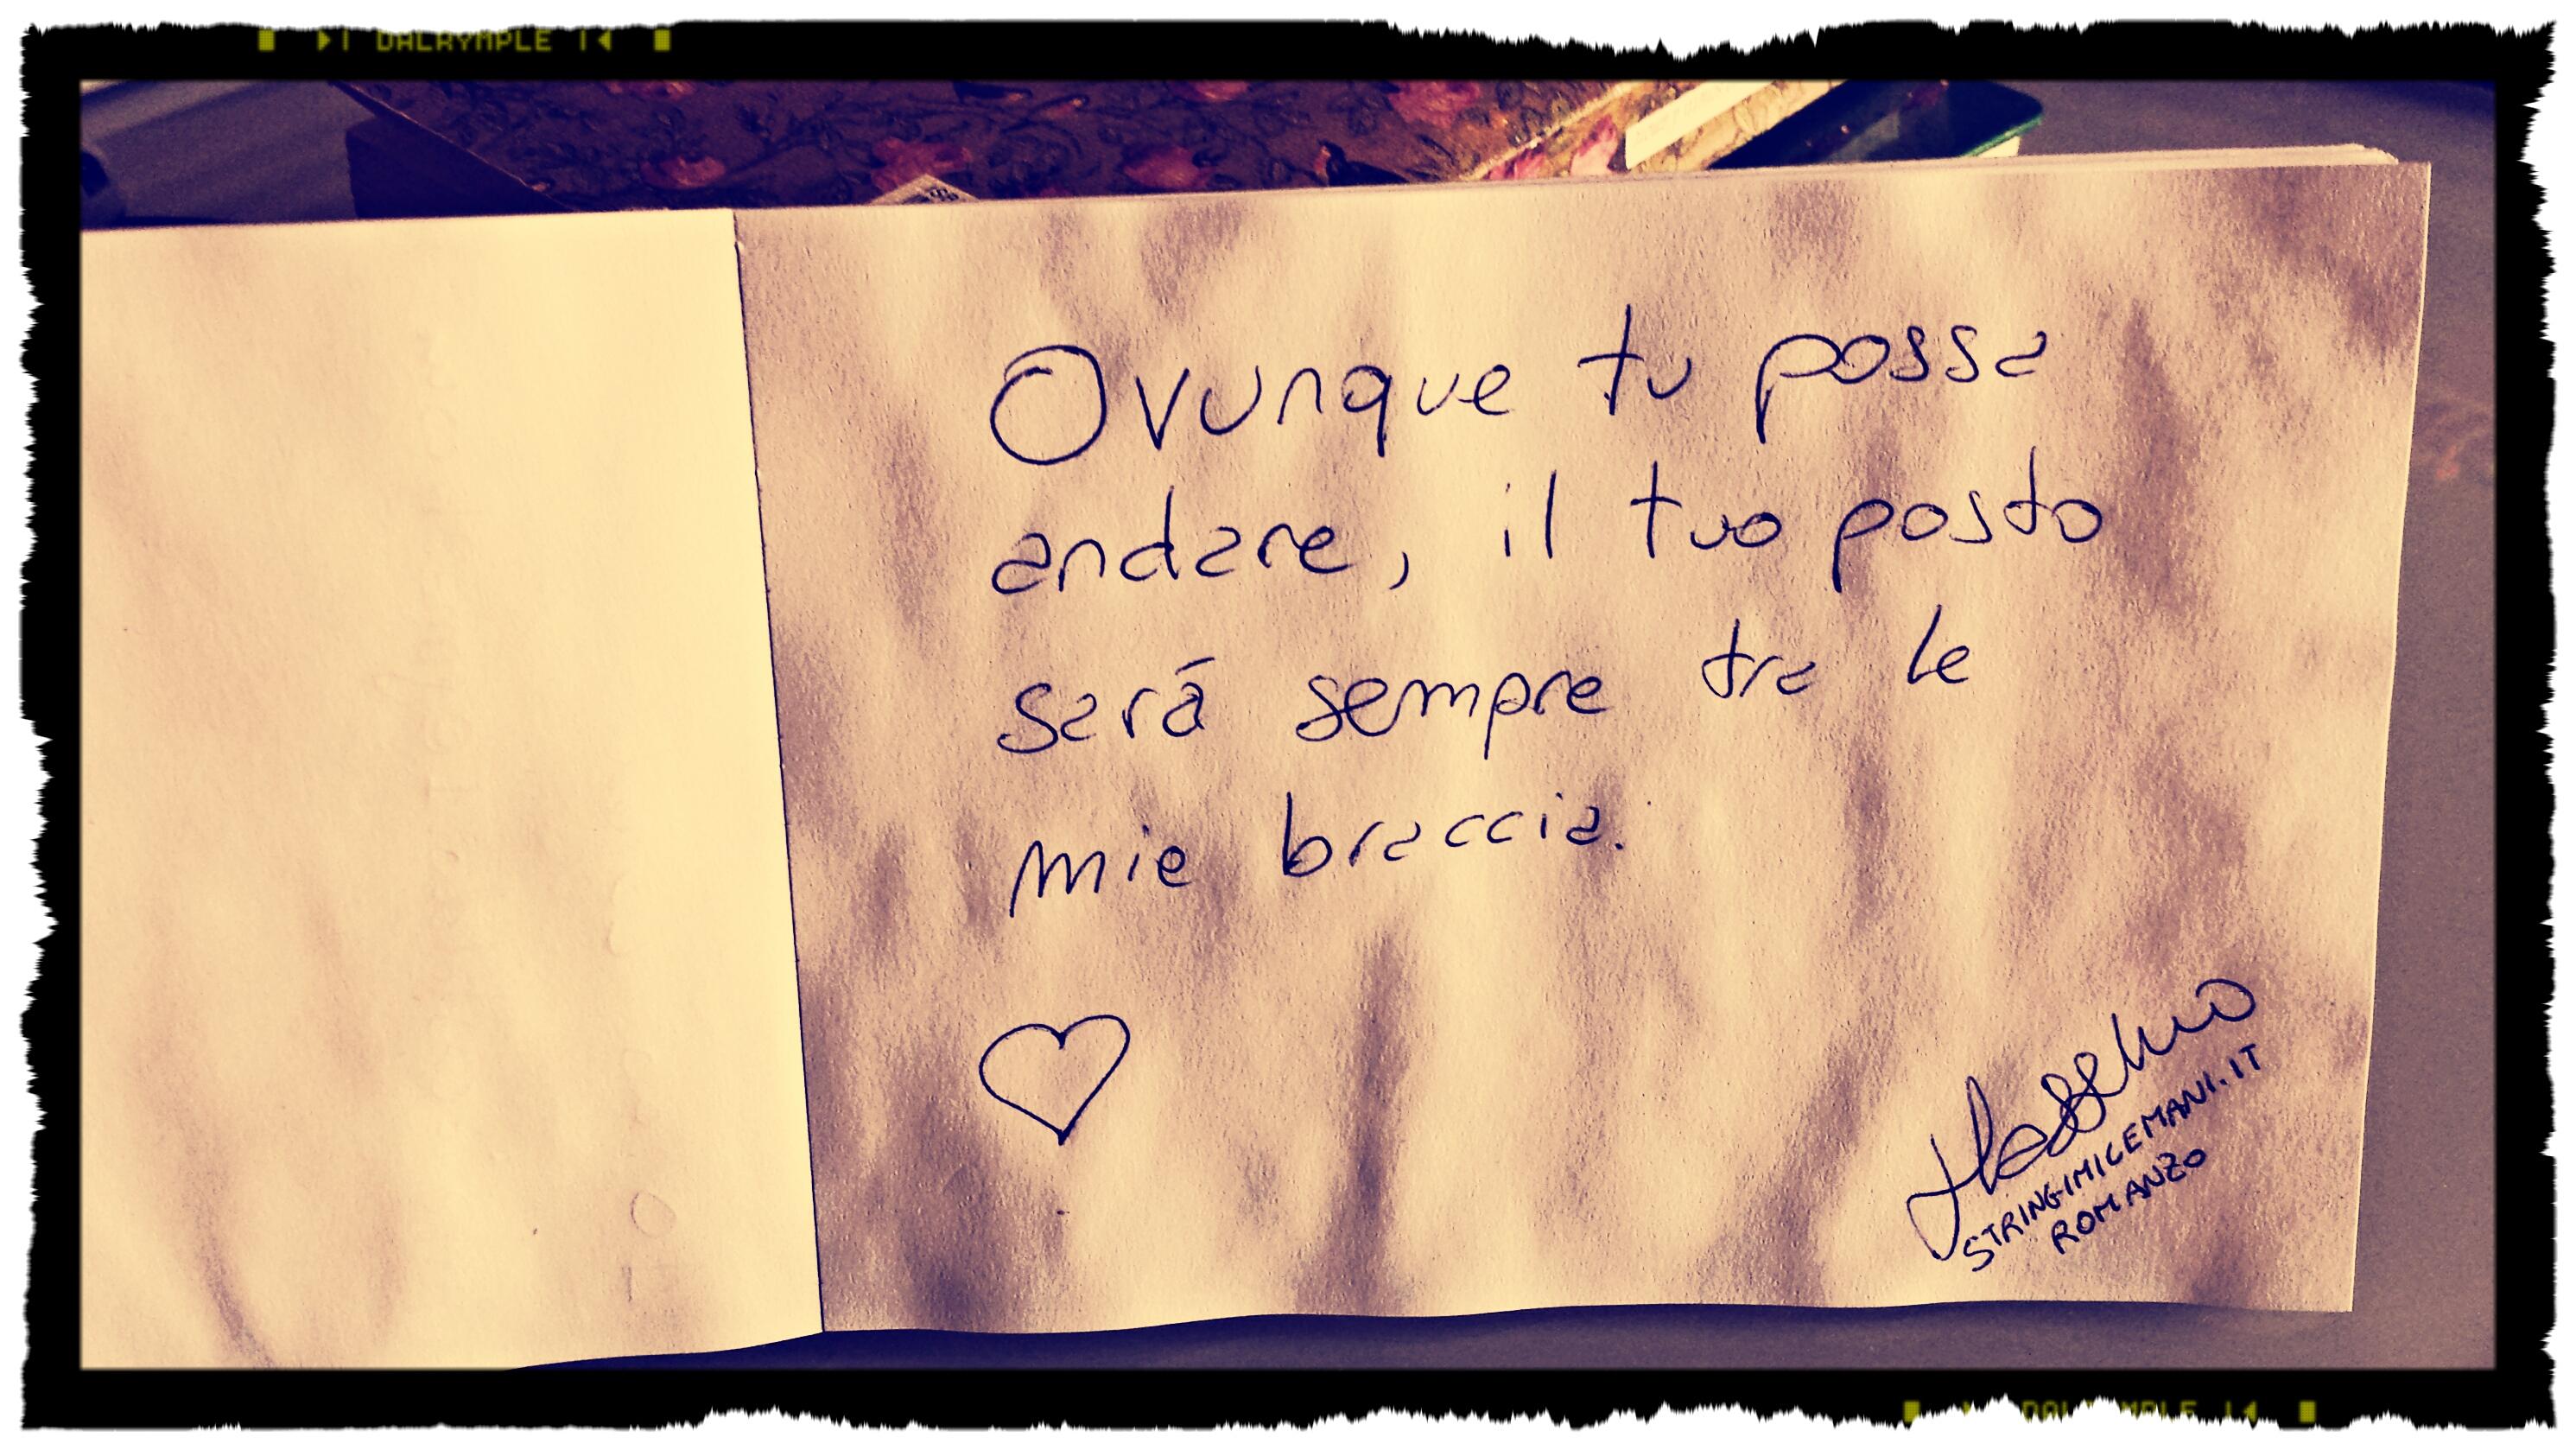 DALRYMPLE
Ovunque tu possa
andare, il tuo posto
sará sempre tra le
mie braccia.
STRINGIMILEMANI.IT
ROMANZO
DALRYMPLE